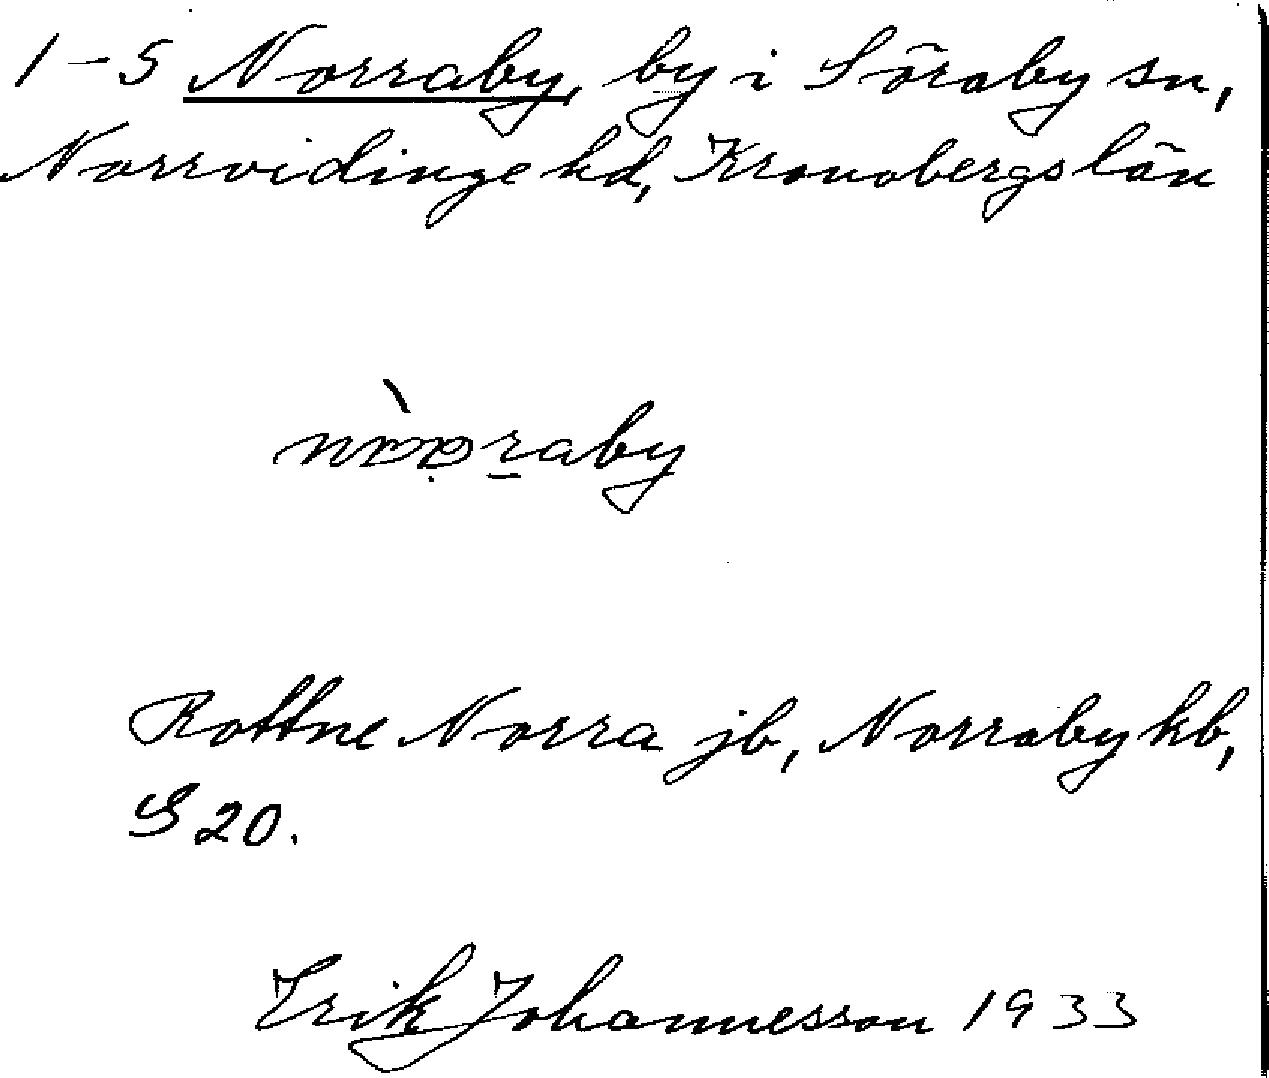 1-5 Norraby, by i Söraby sn,
Norrvidinge hd, Kronobergs län
Rottne Norra jb, Norraby kb,
S 20.
Erik Johannesson 1933